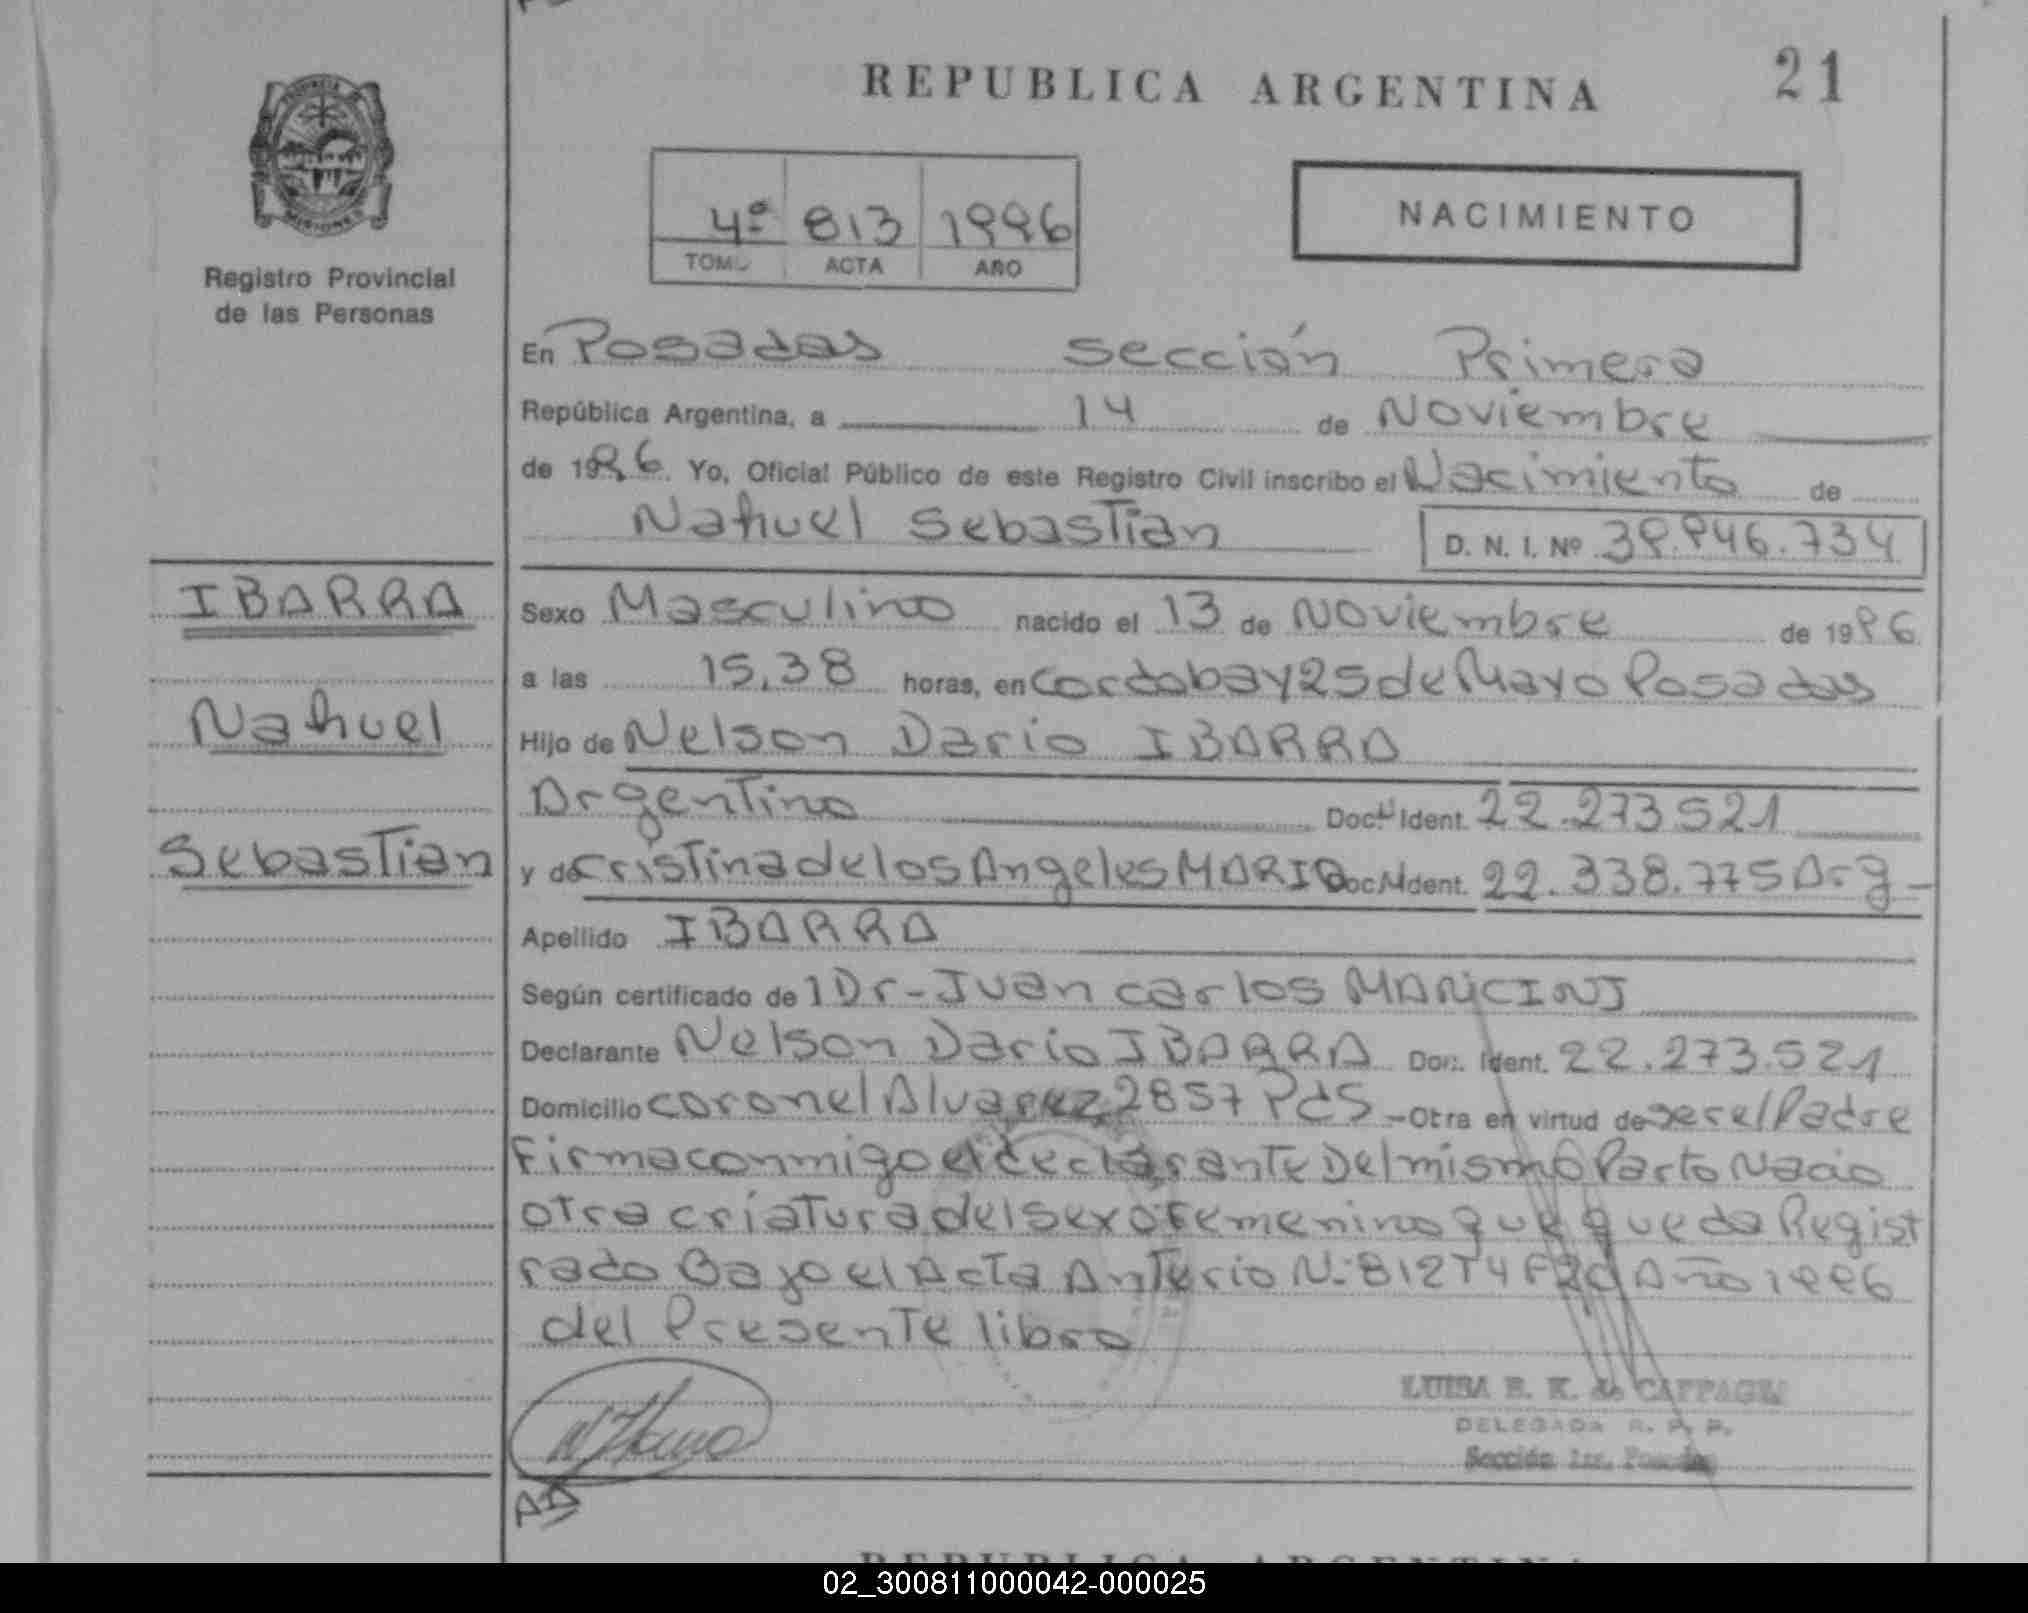 REPUBLICA ARGENTINA
21
PROVINCIA DE
MISIONES
Registro Provincial
de las Personas
4º 813 1996
TOMO ACTA AÑO
NACIMIENTO
En Posadas Sección Primera
República Argentina, a 14 de Noviembre
de 1996. Yo, Oficial Público de este Registro Civil inscribo el Nacimiento de
Nahuel Sebastian D. N. I. Nº 39.946.734
IBARRA
Nahuel
Sebastian
Sexo Masculino nacido el 13 de Noviembre de 1996
a las 15,38 horas, en Cordoba y 25 de Mayo Posadas
Hijo de Nelson Dario IBARRA
Argentino Doc. Ident. 22.273521
y de Cristina de los Angeles MARIO Doc. Ident. 22.338.775 Arg-
Apellido IBARRA
Según certificado de l Dr- Juan Carlos MANCINI
Declarante Nelson Dario IBARRA Doc. Ident. 22.273.521
Domicilio Coronel Alvarez 2857 Pds -Otra en virtud de ser el Padre
Firma conmigo el declarante Del mismo Parto Nacio
otra criatura del sexo femenino que queda Regist
rado Bajo el Acta Anterio N: 812 T4 F20 Año 1996
del Presente libro
LUISA E. K. de CAFFAGNI
DELEGADA R. P. P.
Sección 1ra. Posadas
REPUBLICA ARGENTINA
02_300811000042-000025